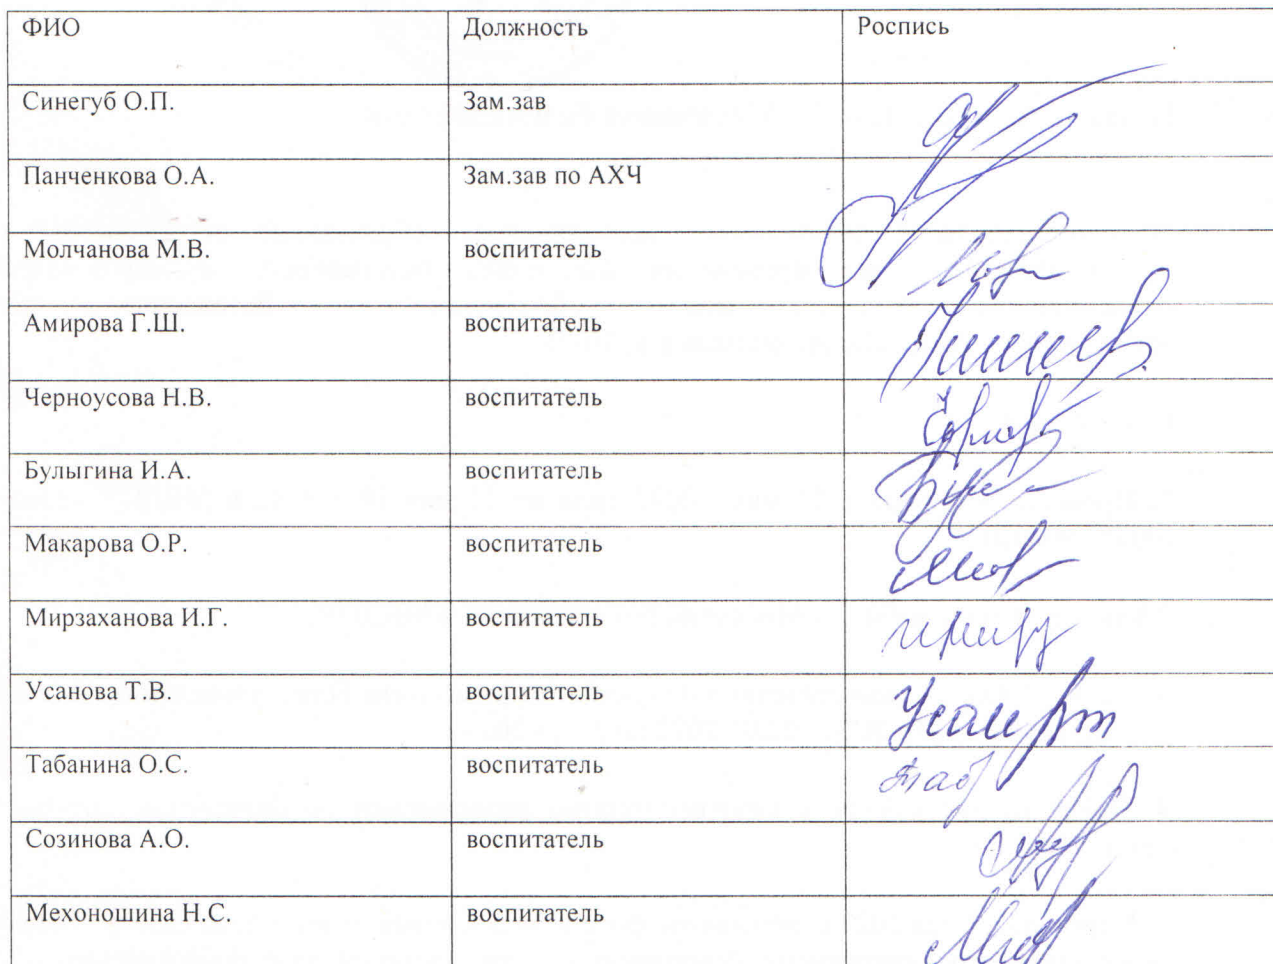 ФИО Должность Роспись
Синегуб О.П. Зам.зав
Панченкова О.А. Зам.зав по АХЧ
Молчанова М.В. воспитатель
Амирова Г.Ш. воспитатель
Черноусова Н.В. воспитатель
Булыгина И.А. воспитатель
Макарова О.Р. воспитатель
Мирзаханова И.Г. воспитатель
Усанова Т.В. воспитатель
Табанина О.С. воспитатель Таб
Созинова А.О. воспитатель
Мехоношина Н.С. воспитатель